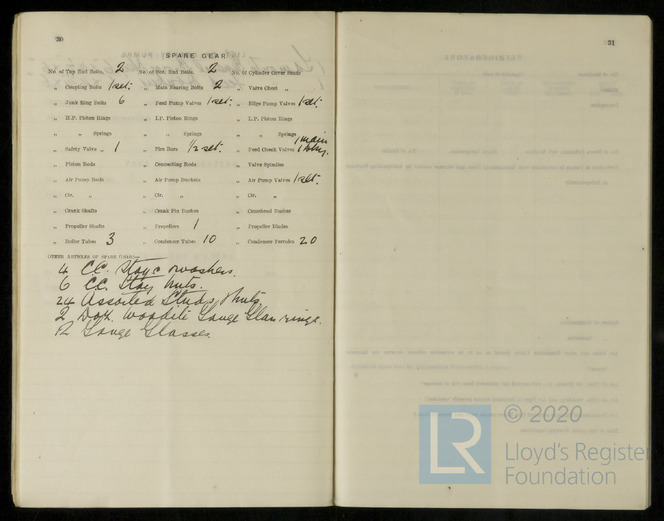 30
SPARE GEAR
No. of Top End Bolts, 2 No. of Bot. End Bolts, 2 No. of Cylinder Cover Studs
„ Coupling Bolts 1 set. „ Main Bearing Bolts 2 „ Valve Chest „
„ Junk Ring Bolts 6 „ Feed Pump Valves 1 set. „ Bilge Pump Valves 1 set.
„ H.P. Piston Rings „ I.P. Piston Rings „ L.P. Piston Rings
„ „ Springs „ „ Springs „ „ Springs
„ Safety Valve „ 1 „ Fire Bars 1/2 set. „ Feed Check Valves 1 main 1
„ Piston Rods „ Connecting Rods „ Valve Spindles
„ Air Pump Rods „ Air Pump Buckets „ Air Pump Valves 1 set.
„ Cir. „ „ Cir. „ „ Cir. „
„ Crank Shafts „ Crank Pin Bushes „ Crosshead Bushes
„ Propeller Shafts „ Propellers 1 „ Propeller Blades
„ Boiler Tubes 3 „ Condenser Tubes 10 „ Condenser Ferrules 20
OTHER ARTICLES OF SPARE GEAR:—
4 C.C. Stays & washers.
6 C.C. Stay nuts.
24 Assorted Studs & nuts.
2 Doz. Woodite Gauge Glass rings.
12 Gauge Glasses.
31
© 2020
LR
Lloyd's Register
Foundation